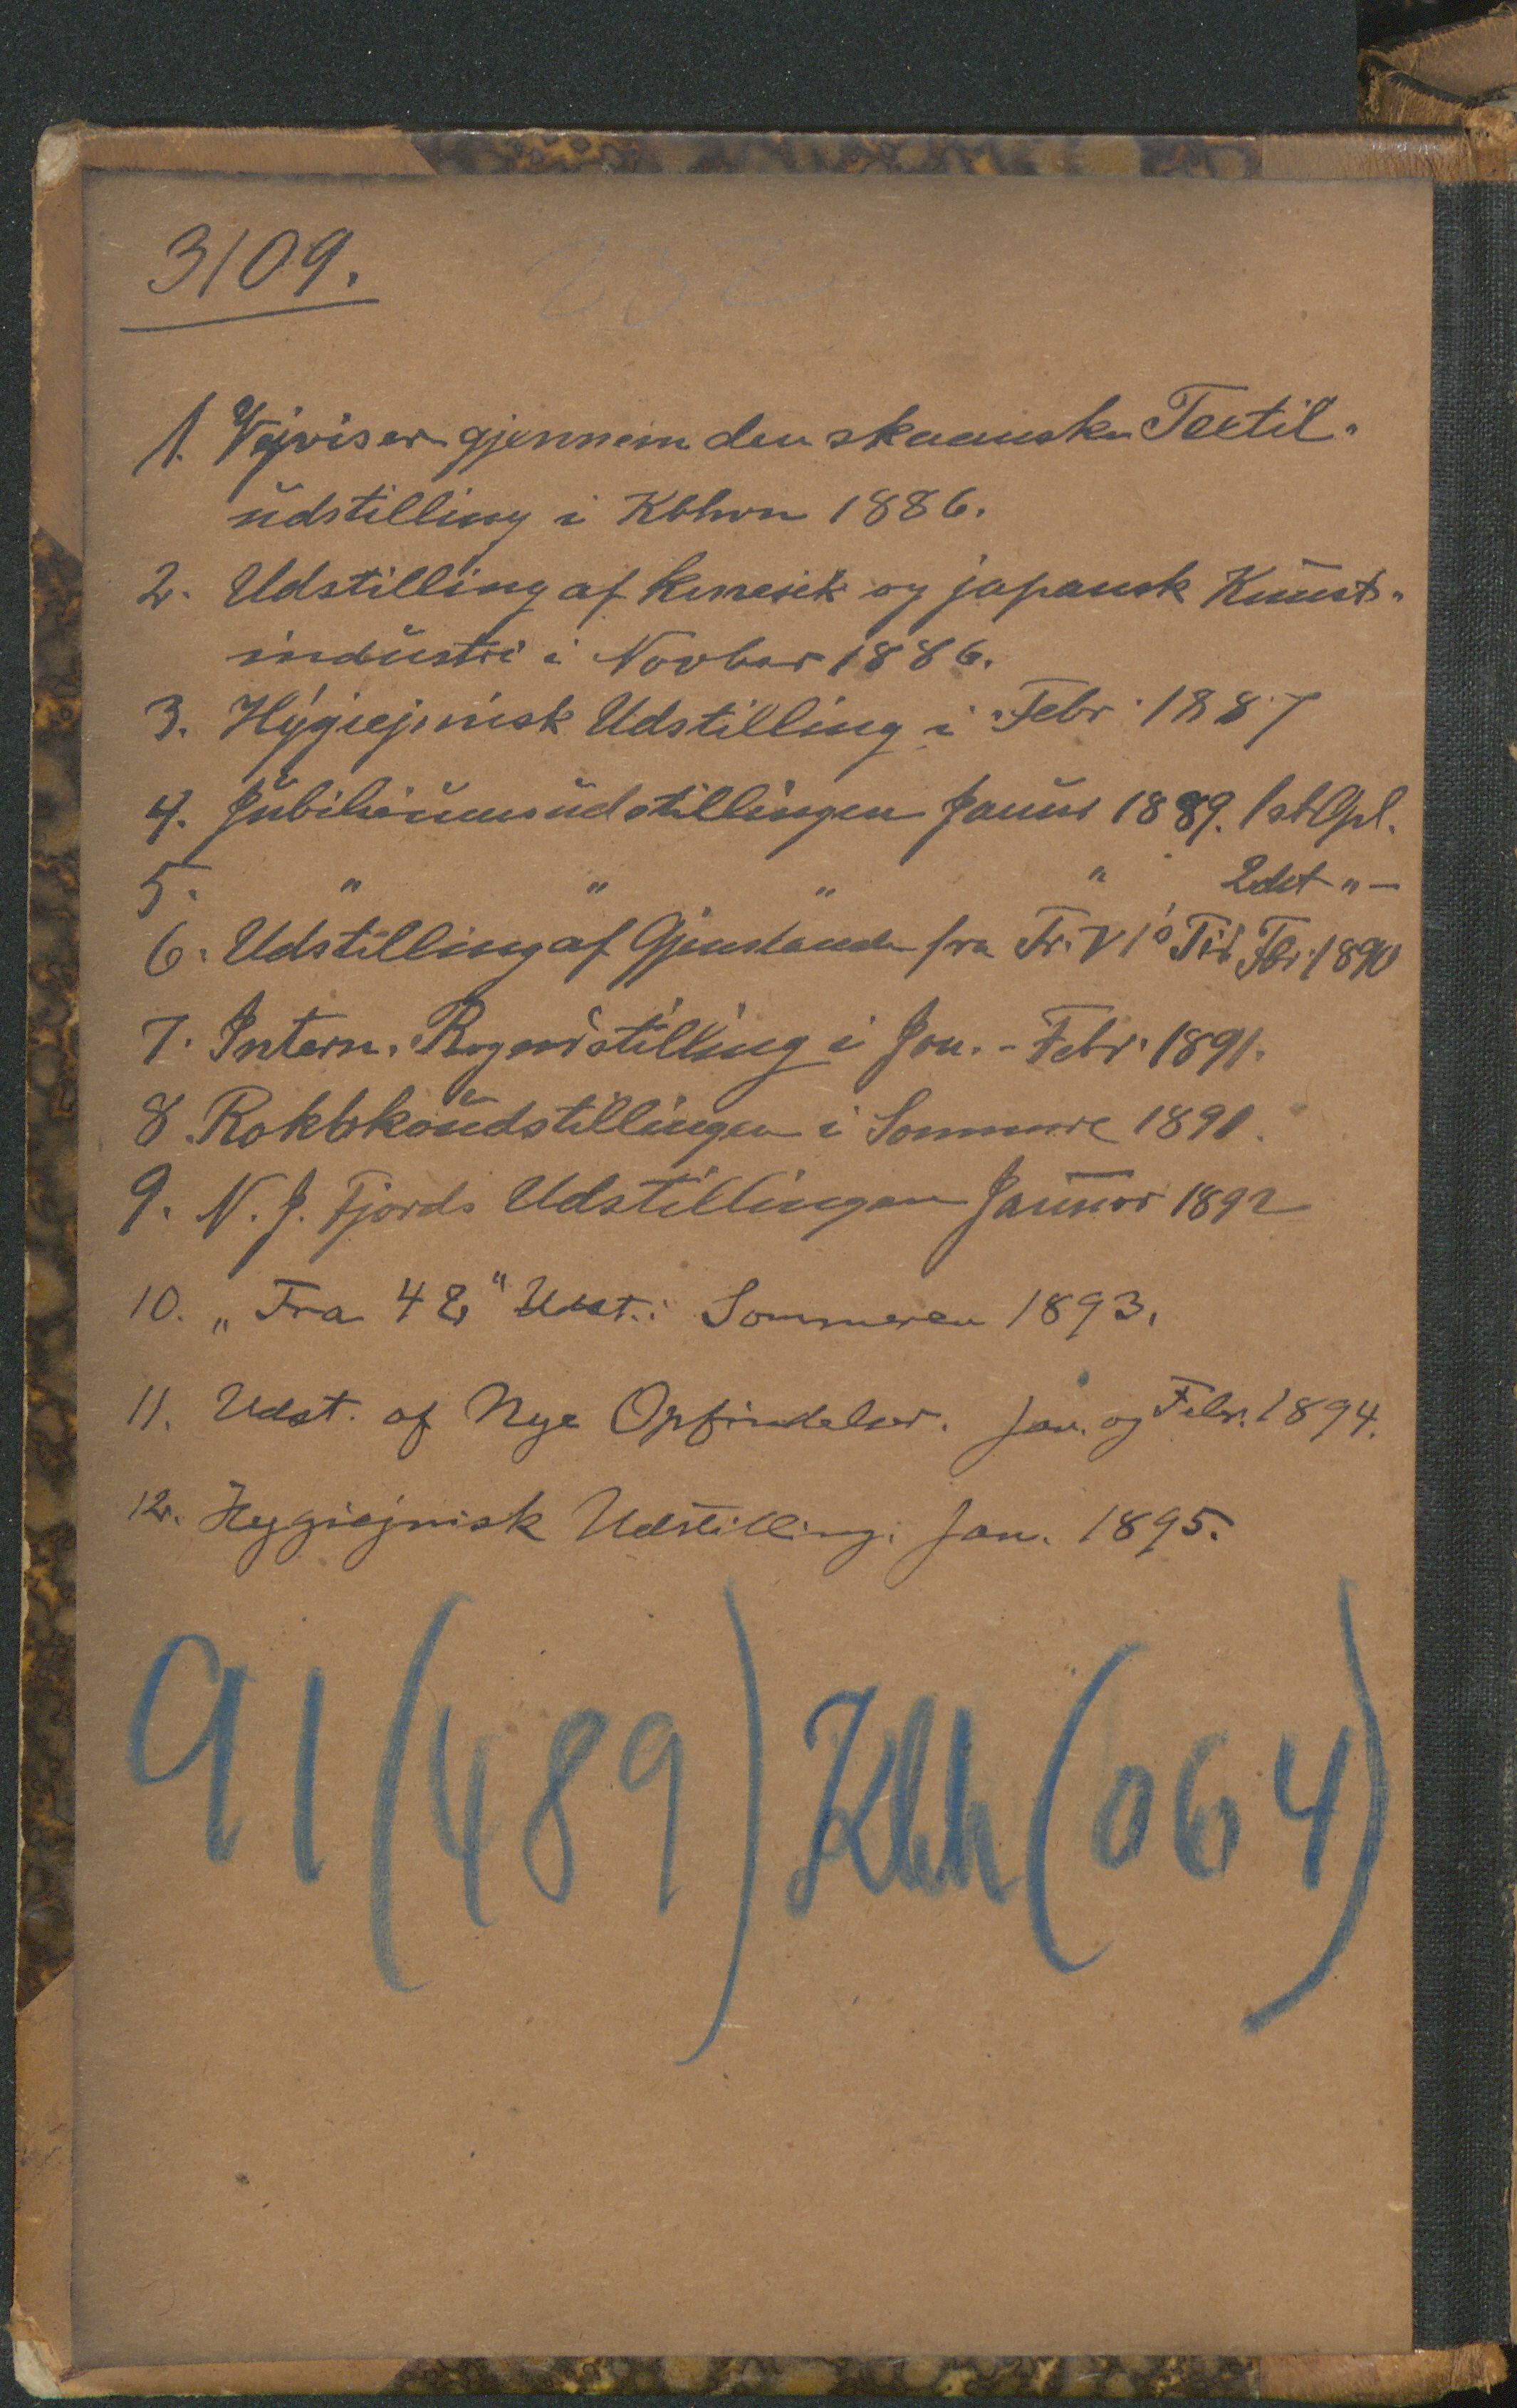 3109.
232
1. Vejviser gjennem den skaanske Textil-
udstilling i Kbhvn 1886.
2. Udstilling af kinesisk og japansk Kunst-
industri i Novber 1886.
3. Hygiejnisk Udstilling i Febr. 1887
4. Jubilæumsudstillingen Januar 1889. 1st Opl.
5. " " " " 2det " –
6. Udstilling af Gjenstande fra Fr. VI's Tid Fbr. 1890
7. Intern. Rygeudstilling i Jan. - Febr. 1891.
8. Rokkokoudstillingen i Sommere 1891.
9. N. J. Fjords Udstillingen Januar 1892
10. „Fra 48" Udst. : Sommeren 1893.
11. Udst. af Nye Opfindelser. Jan. og Febr. 1894.
12. Hygiejnisk Udstilling. Jan. 1895.
91(489)Kbh(064)